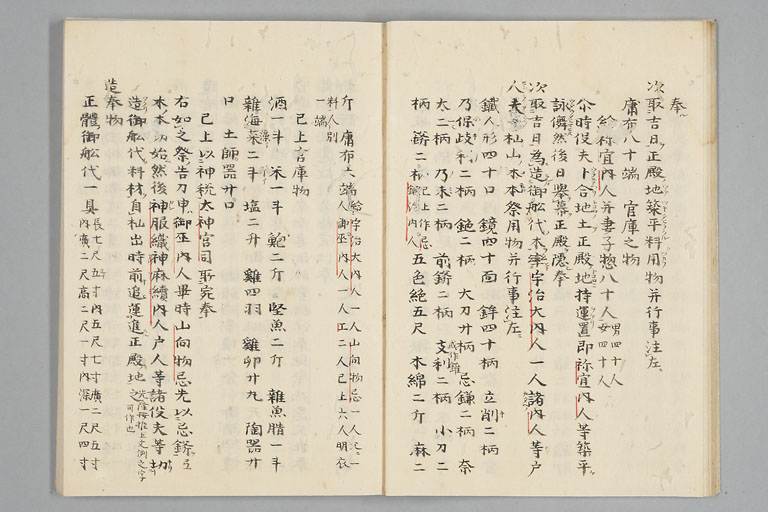 奉
次取吉日正殿地築平料用物并行事注左
庸布八十端 官庫之物
給祢宜内人并妻子惣八十人 男四十人 女四十人
尒時役夫卜合地土正殿地持運置即祢宜内人等築平
詠儛然後日舉幕正殿隱奉
次取吉日為造御舩代木樂宇治大内人一人諸内人等戸
人夫杣山木本祭用物并行事注左
鐵人形四十口 鏡四十面 鉾四十柄 立削二柄
乃保岐利二柄 鎹二柄 大刀廿柄 忌鎌二柄 奈
太二柄 乃未二柄 前鋳二柄 支利二柄 小刀二
柄 鋳二柄 已上作忌鍛冶内人 五色絁五尺 木綿二斤 麻二
斤 庸布六端 給宇治大内人一人山向物忌一人 御巫内人一人工二人已上六人明衣
料人別
一端
已上官庫物
酒一斗 米一斗 鮑二斤 堅魚二斤 雜魚腊一斗
雜海菜二斗 塩二升 雞四羽 雞卵廿九 陶器廿
口 土師器廿口
已上以神税太神宮司所宛奉
右如之祭告刀申御巫内人畢時山向物忌先以忌鋳
木本切始然後神服織神麻續内人戸人等諸役夫等切
造御舩代料材自杣出時前追運進正殿地之
造奉物
正體御舩代一具 長七尺五寸内五尺七寸廣二尺五寸 内廣二尺高二尺一寸内深一尺四寸